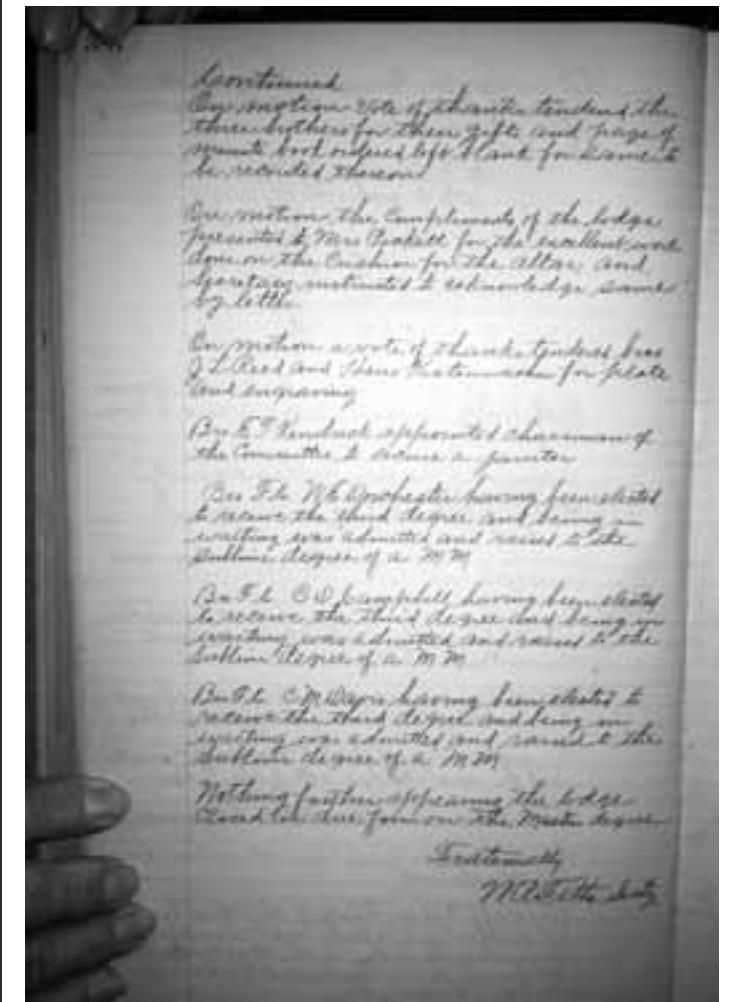 Continued
On motion Vote of thanks tendered the
three brothers for their gifts and page of
minute book ordered left blank for same to
be recorded thereon
On motion the Compliments of the lodge
presented to Mrs for the excellent work
done on the Cushion for the altar and
Secretary instructed to acknowledge same
by letter
On motion a vote of thanks tendered bros
J L Reed and for plate
and engraving
Bro E T appointed chairman of
the Committee to secure a janitor
Bro F. C. having been elected
to receive the third degree and being in
waiting was admitted and raised to the
Sublime degree of a M M
Bro F. C. C D Campbell having been elected
to receive the third degree and being in
waiting was admitted and raised to the
Sublime degree of a M M
Bro F. C. C M Davis having been elected to
receive the third degree and being in
waiting was admitted and raised to the
Sublime degree of a M M
Nothing further appearing the lodge
Closed in due form on the Master degree
Fraternally
Secty